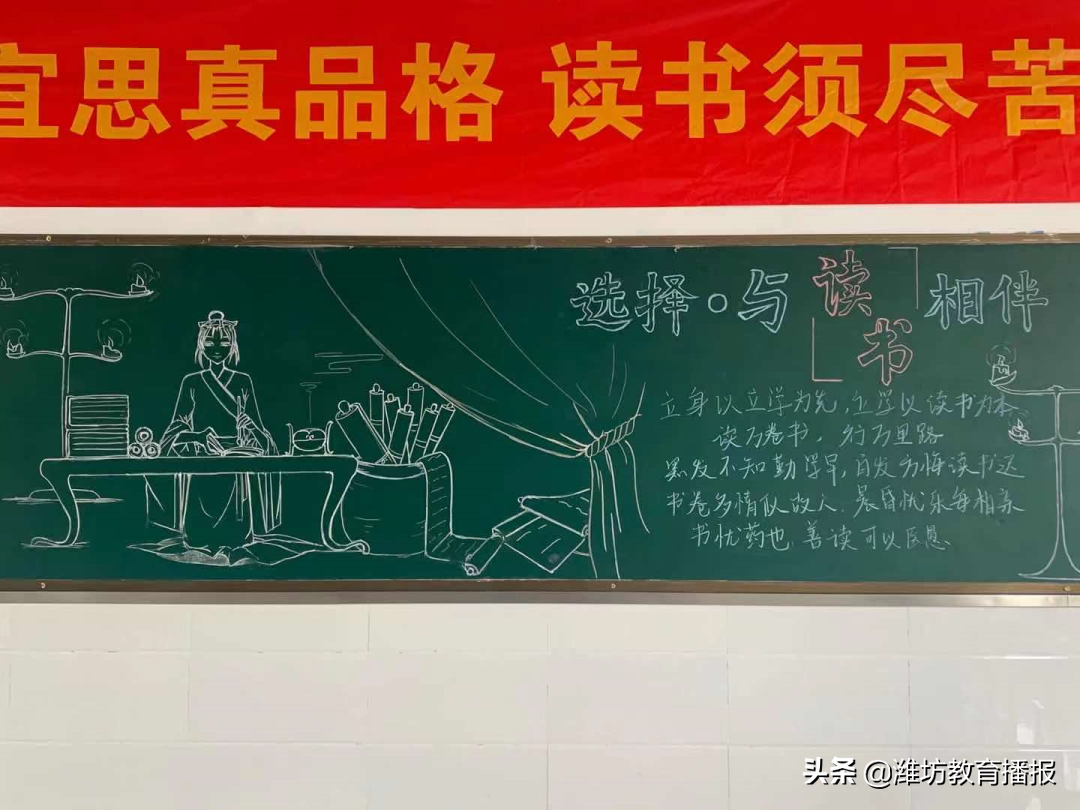 宜思真品格 读书须尽苦
选择·与读书相伴
立身以立学为先，立学以读书为本
读万卷书，行万里路
黑发不知勤学早，白发方悔读书迟
书卷多情似故人，晨昏忧乐每相亲
书犹药也，善读可以医愚
头条 @潍坊教育播报